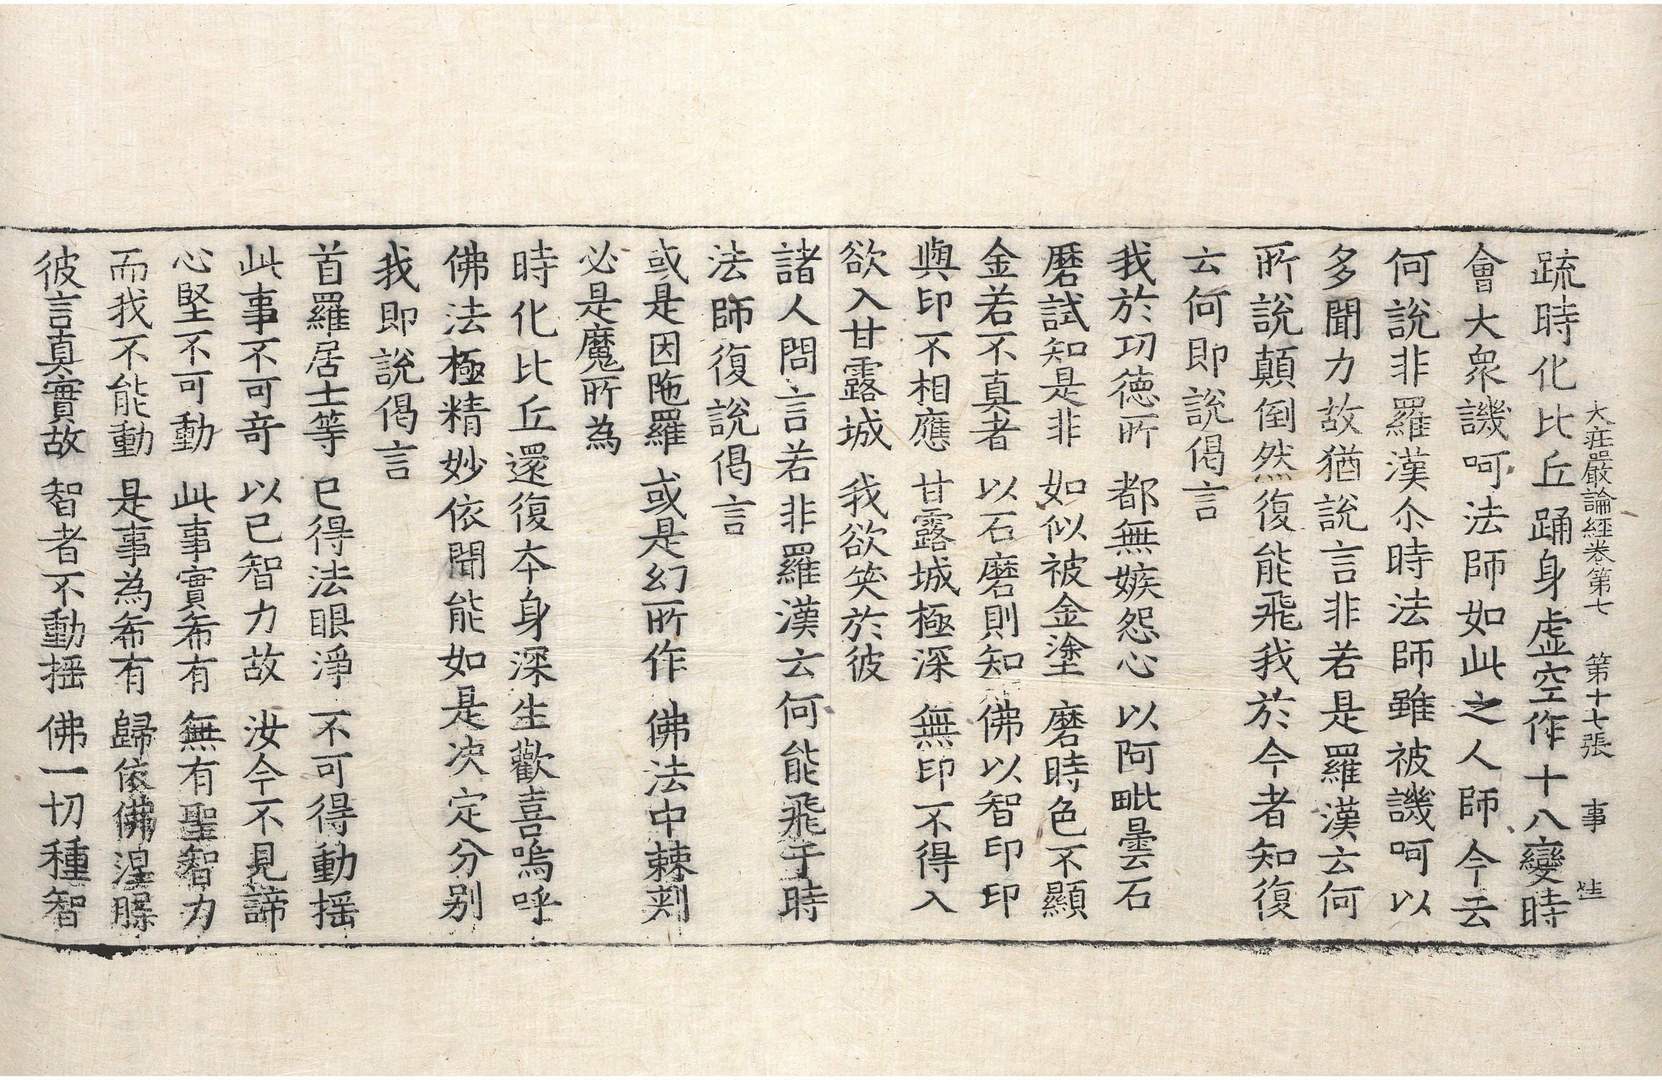 大莊嚴論經卷第七　第十七張　事
䟽時化比丘踊身虛空作十八變時
會大衆譏呵法師如此之人師今云
何說非羅漢尒時法師雖被譏呵以
多聞力故猶說言非若是羅漢云何
所說顛倒然復能飛我於今者知復
云何即說偈言
我於功德所　都無嫉怨心　以阿毗曇石
磨試知是非　如似被金塗　磨時色不顯
金若不真者　以石磨則知　佛以智印印
與印不相應　甘露城極深　無印不得入
欲入甘露城　我欲笑於彼
諸人問言若非羅漢云何能飛于時
法師復說偈言
或是因陁羅　或是幻所作　佛法中棘刾
必是魔所為
時化比丘還復本身深生歡喜嗚呼
佛法極精妙依聞能如是决定分别
我即說偈言
首羅居士等　已得法眼淨　不可得動搖
此事不可奇　以己智力故　汝今不見諦
心堅不可動　此事實希有　無有聖智力
而我不能動　是事為希有　歸依佛涅槃
彼言真實故　智者不動搖　佛一切種智